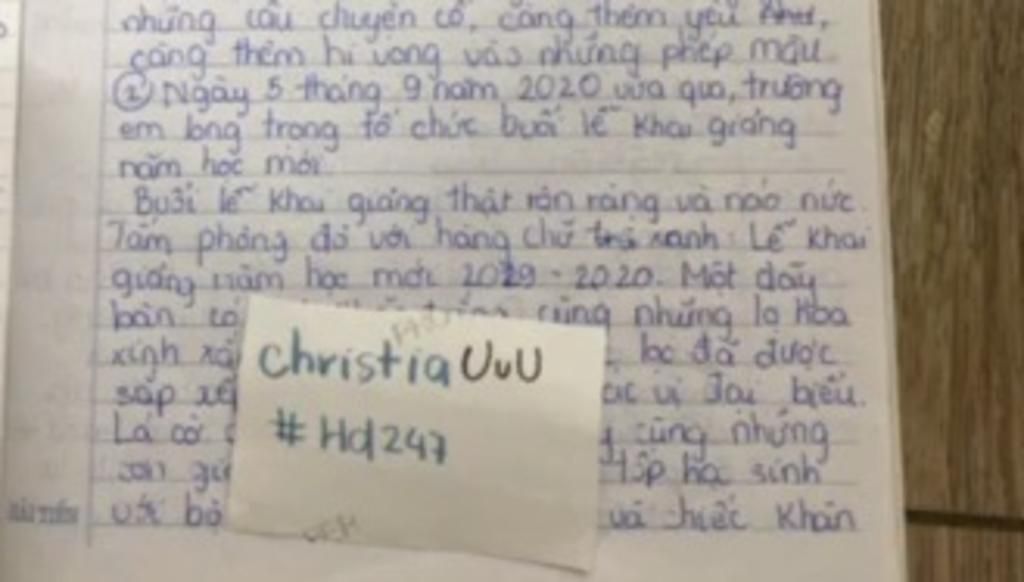 những câu chuyện cổ, càng thêm yêu
càng thêm hi vọng vào những phép màu
② Ngày 5 tháng 9 năm 2020 vừa qua, trường
em long trọng tổ chức buổi lễ khai giảng
năm học mới
Buổi lễ khai giảng thật rộn ràng và náo nức.
Tấm phông đỏ với hàng chữ xanh: Lễ khai
giảng năm học mới 2019 - 2020. Một dãy
bàn có cùng những lọ hoa
xinh lọc đã được
sắp vị đại biểu.
Lá cờ cùng những
học sinh
với bộ và chiếc khăn
christia UvU
#Hd247